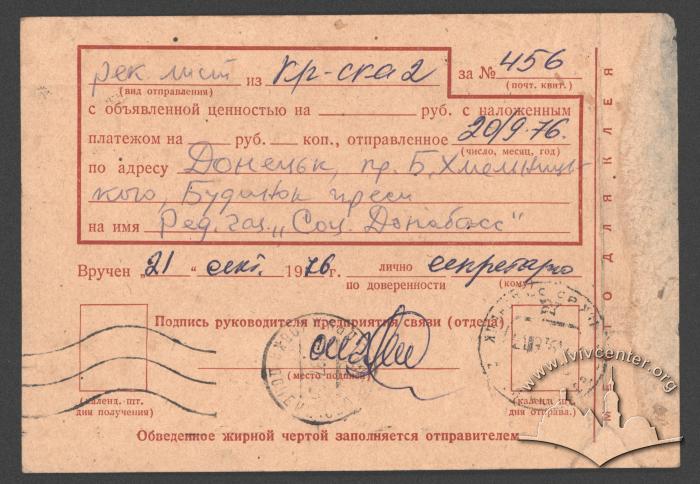 рек. лист из Кр-ска 2 за № 456
(вид отправления) (почт. квит.)
с объявленной ценностью на руб. с наложенным
платежом на руб. коп., отправленное 20/9-76.
(число, месяц, год)
по адресу Донецьк, пр. Б. Хмельниць-
кого, Будинок преси
на имя Ред. газ. „Соц. Донбасс"
Вручен „21" сент. 1976 г. лично секретарю
по доверенности (кому)
Подпись руководителя предприятия связи (отдела)
(место подписи)
(календ. шт.
дня получения)
(календ. шт.
дня отправа.)
Обведенное жирной чертой заполняется отправителем
МЕ ДЛЯ КЛЕЯ
www.lvivcenter.org